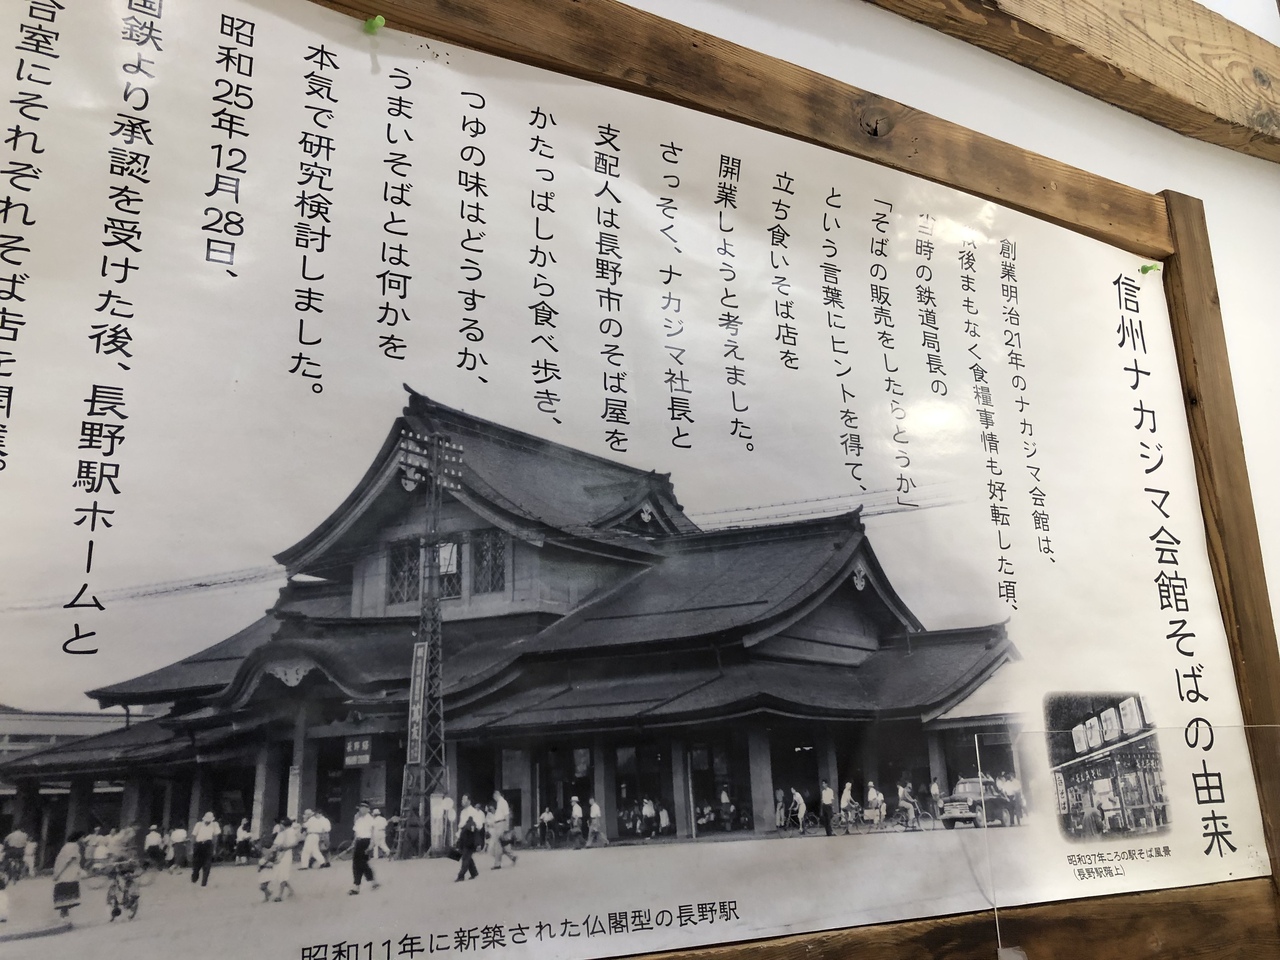 信州ナカジマ会館そばの由来
創業明治21年のナカジマ会館は、
後まもなく食糧事情も好転した頃、
当時の鉄道局長の
「そばの販売をしたらとうか」
という言葉にヒントを得て、
立ち食いそば店を
開業しようと考えました。
さっそく、ナカジマ社長と
支配人は長野市のそば屋を
かたっぱしから食べ歩き、
つゆの味はどうするか、
うまいそばとは何かを
本気で研究検討しました。
昭和25年12月28日、
国鉄より承認を受けた後、長野駅ホームと
合室にそれぞれそば店を開業。
昭和37年ころの駅そば風景
(長野駅階上)
昭和11年に新築された仏閣型の長野駅